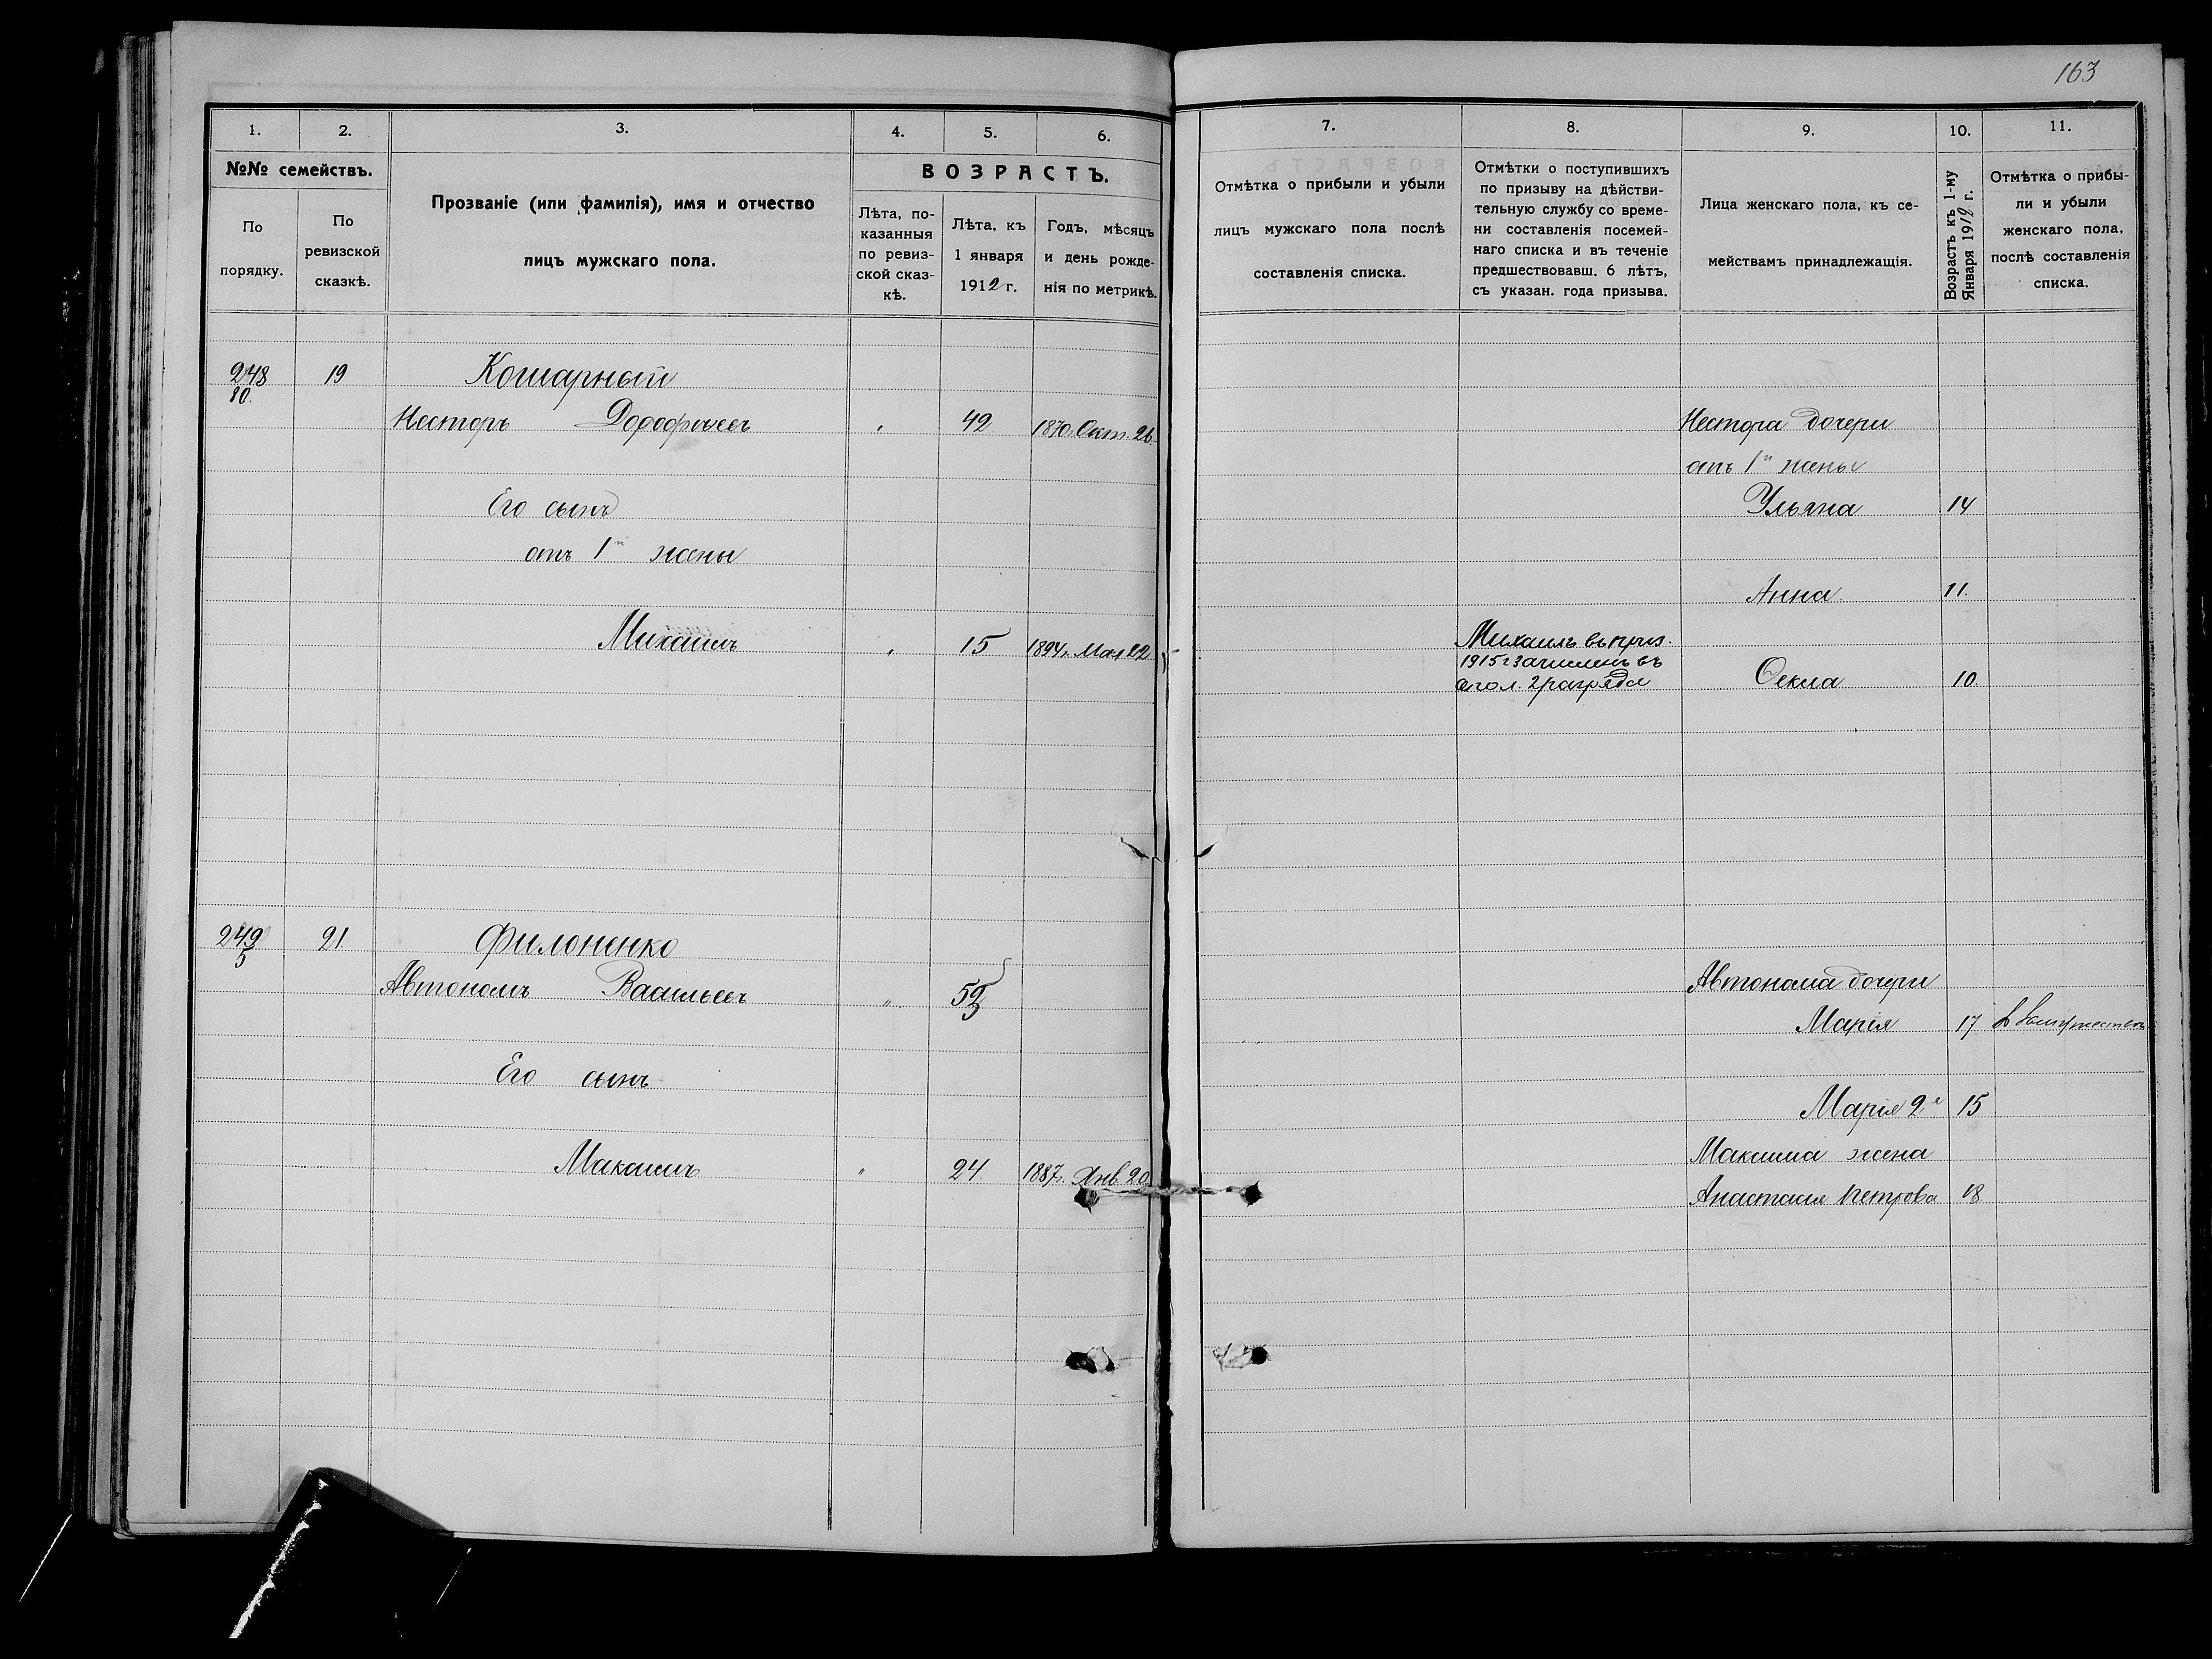 163
1. 2. 3. 4. 5. 6.
№№ семействъ.
По порядку.
По ревизской сказкѣ.
Прозваніе (или фамилія), имя и отчество
лицъ мужскаго пола.
ВОЗРАСТЪ.
Лѣта, по-
казанныя
по ревиз-
ской сказ-
кѣ.
Лѣта, къ
1 января
1912 г.
Годъ, мѣсяцъ
и день рожде-
нія по метрикѣ.
248 19 Кошарный
80.
Несторъ Дорофѣевъ " 42 1870 г. Окт. 26
Его сынъ
отъ 1й жены
Михаилъ " 15 1894 г. Мая 22
249 21 Филоненко
5
Автономъ Васильевъ "
Его сынъ
Максимъ " 24. 1887 г. Янв 20
7. 8. 9. 10. 11.
Отмѣтка о прибыли и убыли
лицъ мужскаго пола послѣ
составленія списка.
Отмѣтки о поступившихъ
по призыву на дѣйстви-
тельную службу со време-
ни составленія посемей-
наго списка и въ теченіе
предшествовавш. 6 лѣтъ,
съ указан. года призыва.
Лица женскаго пола, къ се-
мействамъ принадлежащія.
Возрастъ къ 1-му
Января 1912 г.
Отмѣтка о прибы-
ли и убыли
женскаго пола,
послѣ составленія
списка.
Нестора дочери
отъ 1й жены
Ульяна 14
Анна 11.
Михаилъ въ приз.
1915 г зачисленъ въ
опол. 2 разряда
Ѳекла 10.
Автонома дочери
Марія 17 въ замужествѣ
Марія 2я 15
Максима жена
Анастасія Петрова 18